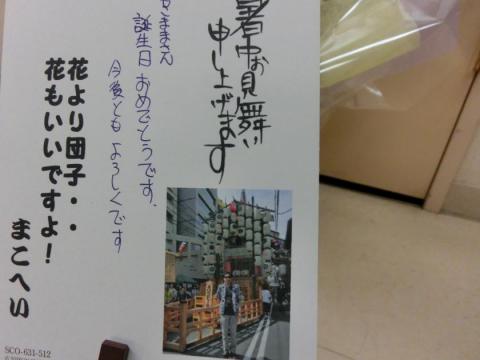 暑中お見舞い
申し上げます
誕生日おめでとうです。
今後ともよろしくです
花より団子・・
花もいいですよ！
まこへい
SCO-631-512